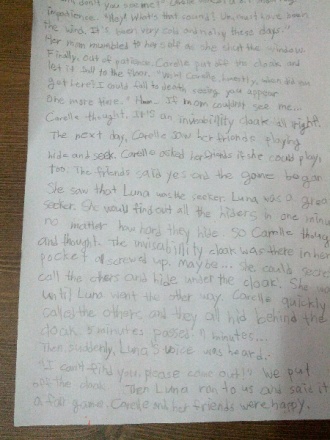 don't you see me?" Carelle
impatience. "Hay! What's that sound? Um, must have been
the wind. It's been very cold and windy these days."
Her mom mumbled to herself as she shut the window.
Finally, out of patience, Carelle put off the cloak, and
let it fall to the floor. "Wow! Carelle, 
get here! I could fall to death seeing you appear
one more time." Hmm... If mom couldn't see me...
Carelle thought. It's an invisibility cloak all right.
The next day, Carelle saw her friends playing
hide and seek. Carelle asked her friends if she could play,
too. The friends said yes and the game began
She saw that Luna was the seeker. Luna was a great
seeker. She would find out all the hiders in one minute
no matter how hard they hide. So Carelle thought
and thought. The invisibility cloak was there in her
pocket screwed up. maybe... she could
call the others and hide under the cloak! She
until Luna went the other way. Carelle quickly
called the others, and they all hid behind the
cloak. 5 minutes passed. 11 minutes...
Then suddenly, Luna's voice was heard.
"I can't find you! please come out!" We put
off the cloak. Then Luna ran to us and said it
a fall game. Carelle and her friends were happy.